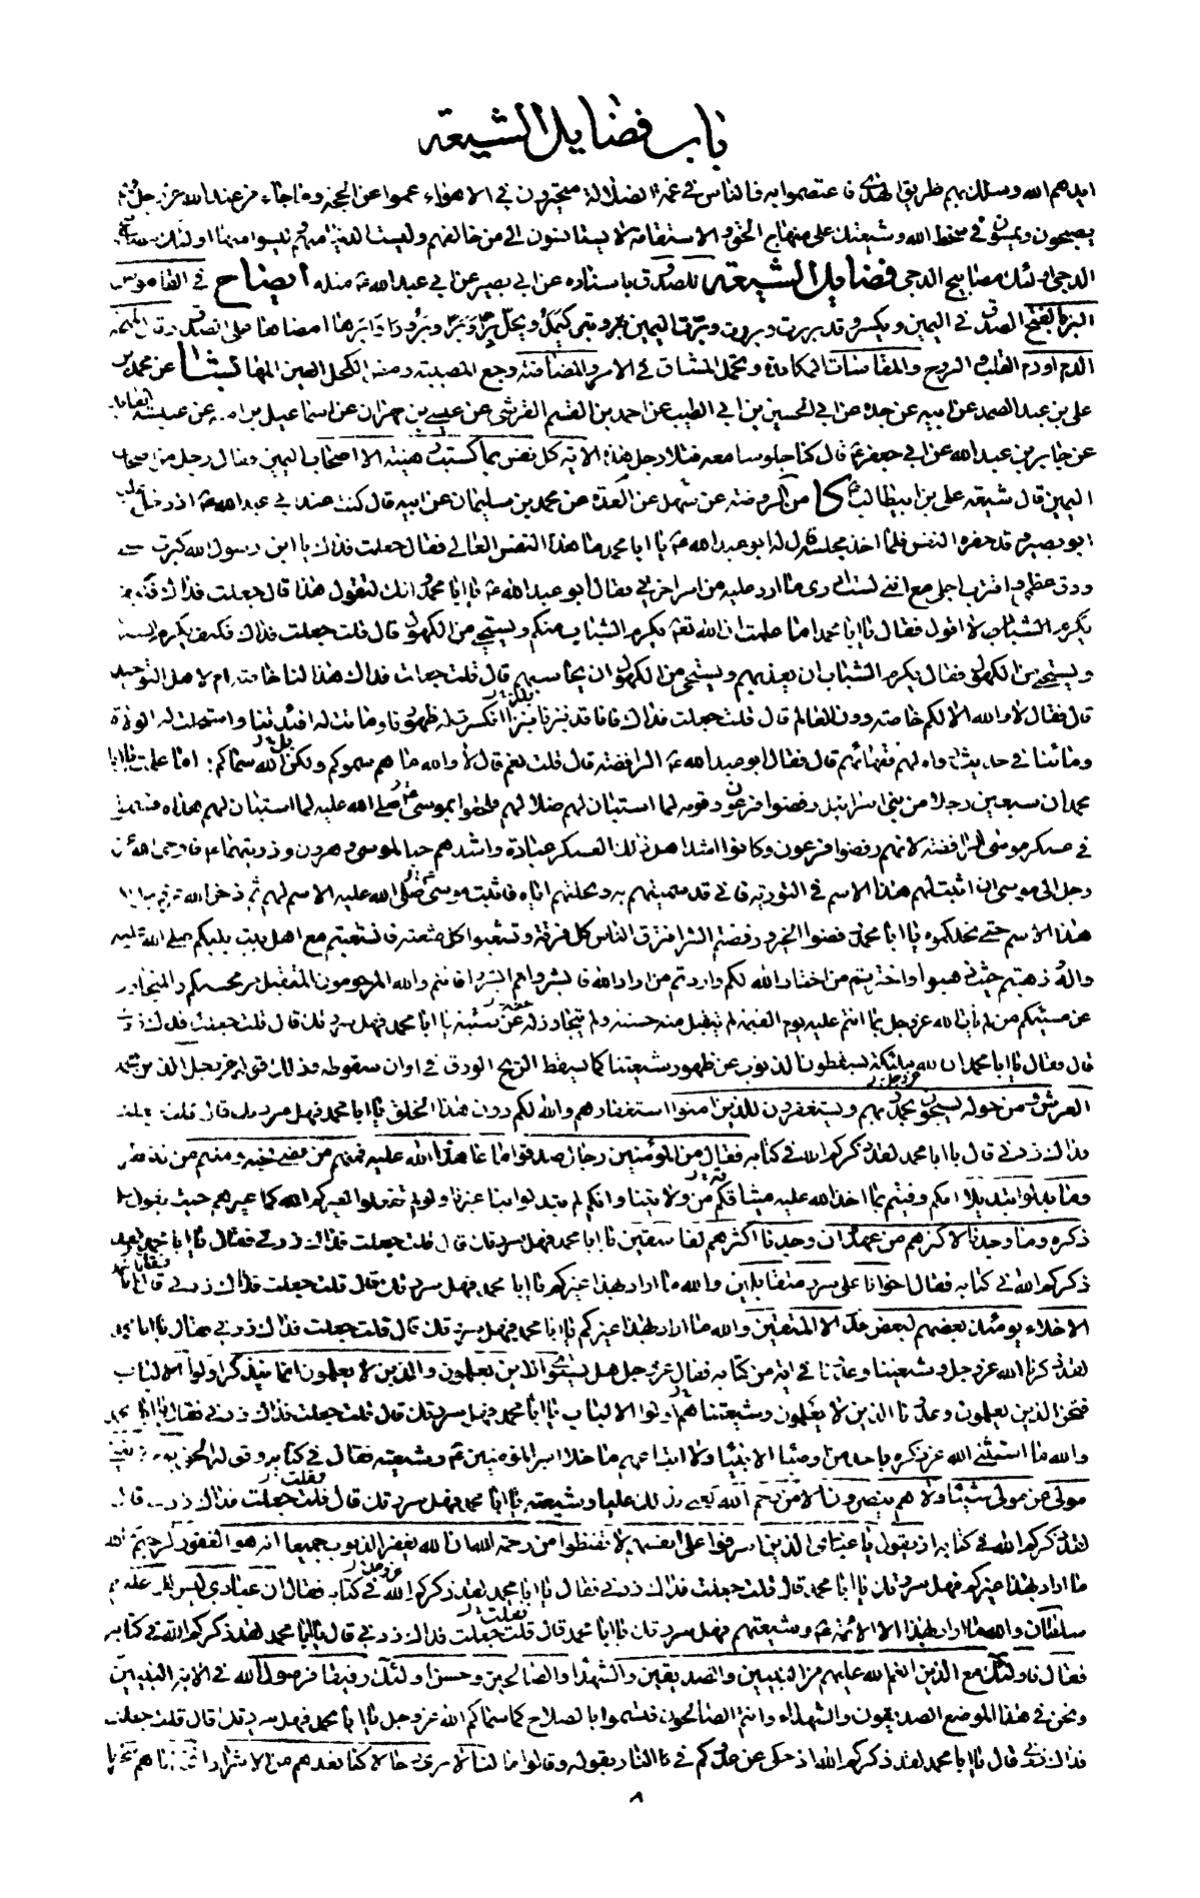 باب فضايل الشيعة
ايدهم الله وسلك بهم طريق الهدى فاعتصموا به فالناس في غمرة الضلالة متحيرون في الاهواء عموا عن الحجة وما جاء من عند الله عز وجل فهم
يصبحون ويمسون في سخط الله وشيعتك على منهاج الحق والاستقامة لا يستانسون الى من خالفهم وليست الدنيا منهم وليسوا منها اولئك مصابيح
الدجى اولئك مصابيح الدجى فضايل الشيعة للصدوق باسناده عن ابي بصير عن ابي عبد الله ع مثله ايضاح في القاموس
البر بالفتح الصدق في اليمين ويكسر وقد بررت وبررت وبرت اليمين تبر وتبر كيمل ويحل برا وبرا وبرورا وابرها امضاها على الصدق
عن محمد بن
علي بن عبد الصمد عن ابيه عن جده عن ابي الحسين بن ابي الطيب عن احمد بن القسم القرشي عن عيسى بن مهران عن اسماعيل بن عن عبسة العابد
عن جابر بن عبد الله عن ابي جعفر ع قال كنا جلوسا معه فتلا رجل هذه الاية كل نفس بما كسبت رهينة الا اصحاب اليمين فقال رجل من اصحاب
اليمين قال شيعة علي بن ابيطالب ع كا من الروضة عن سهل عن العدة عن محمد بن سليمان عن ابيه قال كنت عند ابي عبد الله ع اذ دخل عليه
ابو بصير وقد حفزه النفس فلما اخذ مجلسه قال له ابو عبد الله ع يا ابا محمد ما هذا النفس العالي فقال جعلت فداك يا ابن رسول الله كبرت سني
ودق عظمي واقترب اجلي مع انني لست ادري ما ارد عليه من امر اخرتي فقال ابو عبد الله ع يا ابا محمد وانك لتقول هذا قال جعلت فداك فكيف
لا اقول فقال يا ابا محمد اما علمت ان الله تعالى يكرم الشباب منكم ويستحيي من الكهول قال قلت جعلت فداك فكيف يكرم الشباب
ويستحيي من الكهول فقال يكرم الشباب ان يعذبهم ويستحيي من الكهول ان يحاسبهم قال قلت جعلت فداك هذا لنا خاصة ام لاهل التوحيد
قال فقال لا والله الا لكم خاصة دون العالم قال قلت جعلت فداك فانا قد نبزنا نبزا انكسرت له ظهورنا وماتت له افئدتنا واستحلت له الولاة
دماءنا في حديث رواه لهم فقهاؤهم قال فقال ابو عبد الله ع الرافضة قال قلت نعم قال لا والله ما هم سموكم ولكن الله سماكم اما علمت يا ابا
محمد ان سبعين رجلا من بني اسرائيل رفضوا فرعون وقومه لما استبان لهم ضلالهم فلحقوا بموسى صلى الله عليه لما استبان لهم هداه فسموا
في عسكر موسى الرافضة لانهم رفضوا فرعون وكانوا اشد اهل ذلك العسكر عبادة واشدهم حبا لموسى وهرون وذريتهما ع فاوحى الله عز
وجل الى موسى ان اثبت لهم هذا الاسم في التورية فاني قد سميتهم به ونحلتهم اياه فاثبت موسى صلى الله عليه الاسم لهم ثم ذخر الله عز وجل لكم
هذا الاسم حتى نحلكموه يا ابا محمد رفضوا الخير ورفضتم الشر افترق الناس كل فرقة وتشعبوا كل شعبة فانشعبتم مع اهل بيت نبيكم صلى الله عليه
واله وذهبتم حيث ذهبوا واخترتم من اختار الله لكم واردتم من اراد الله فابشروا ثم ابشروا فانتم والله المرحومون المتقبل من محسنكم والمتجاوز
عن مسيئكم من لم يات الله عز وجل بما انتم عليه يوم القيمة لم يتقبل منه حسنة ولم يتجاوز له عن سيئة يا ابا محمد فهل سررتك قال قلت جعلت فداك زدني
قال فقال يا ابا محمد ان لله ملئكة يسقطون الذنوب عن ظهور شيعتنا كما يسقط الريح الورق في اوان سقوطه وذلك قوله عز وجل الذين يحملون
العرش ومن حوله يسبحون بحمد ربهم ويستغفرون للذين امنوا استغفارهم والله لكم دون هذا الخلق يا ابا محمد فهل سررتك قال قلت جعلت
فداك زدني قال يا ابا محمد لقد ذكركم الله في كتابه فقال من المؤمنين رجال صدقوا ما عاهدوا الله عليه فمنهم من قضى نحبه ومنهم من ينتظر
وما بدلوا تبديلا انكم وفيتم بما اخذ الله عليه ميثاقكم من ولايتنا وانكم لم تبدلوا بنا غيرنا ولو لم تفعلوا لعيركم الله كما عيرهم حيث يقول جل
ذكره وما وجدنا لاكثرهم من عهد وان وجدنا اكثرهم لفاسقين يا ابا محمد فهل سررتك قال قلت جعلت فداك زدني فقال يا ابا محمد لقد
ذكركم الله في كتابه فقال اخوانا على سرر متقابلين والله ما اراد بهذا غيركم يا ابا محمد فهل سررتك قال قلت جعلت فداك زدني قال فقال يا ابا محمد
الاخلاء يومئذ بعضهم لبعض عدو الا المتقين والله ما اراد بهذا غيركم يا ابا محمد فهل سررتك قال قلت جعلت فداك زدني فقال يا ابا محمد
لقد ذكرنا الله عز وجل وشيعتنا وعدونا في اية من كتابه فقال عز وجل هل يستوي الذين يعلمون والذين لا يعلمون انما يتذكر اولوا الالباب
فنحن الذين يعلمون وعدونا الذين لا يعلمون وشيعتنا هم اولوا الالباب يا ابا محمد فهل سررتك قال قلت جعلت فداك زدني فقال يا ابا محمد
والله ما استثنى الله عز ذكره باحد من اوصياء الانبياء ولا اتباعهم ما خلا امير المؤمنين ع وشيعته فقال في كتابه وقوله الحق يوم لا يغني
مولى عن مولى شيئا ولا هم ينصرون الا من رحم الله يعني بذلك عليا وشيعته يا ابا محمد فهل سررتك قال قلت جعلت فداك زدني قال
لقد ذكركم الله في كتابه اذ يقول يا عبادي الذين اسرفوا على انفسهم لا تقنطوا من رحمة الله ان الله يغفر الذنوب جميعا انه هو الغفور الرحيم والله
ما اراد بهذا غيركم فهل سررتك يا ابا محمد قال قلت جعلت فداك زدني فقال يا ابا محمد لقد ذكركم الله في كتابه فقال ان عبادي ليس لك عليهم
سلطان والله ما اراد بهذا الا الائمة ع وشيعتهم فهل سررتك يا ابا محمد قال قلت جعلت فداك زدني قال يا ابا محمد لقد ذكركم الله في كتابه
فقال فاولئك مع الذين انعم الله عليهم من النبيين والصديقين والشهداء والصالحين وحسن اولئك رفيقا فرسول الله في الاية النبيين
ونحن في هذا الموضع الصديقون والشهداء وانتم الصالحون فتسموا بالصلاح كما سماكم الله عز وجل يا ابا محمد فهل سررتك قال قلت جعلت
فداك زدني قال يا ابا محمد لقد ذكركم الله اذ حكى عن عدوكم في النار بقوله وقالوا ما لنا لا نرى رجالا كنا نعدهم من الاشرار اتخذناهم سخريا
٨